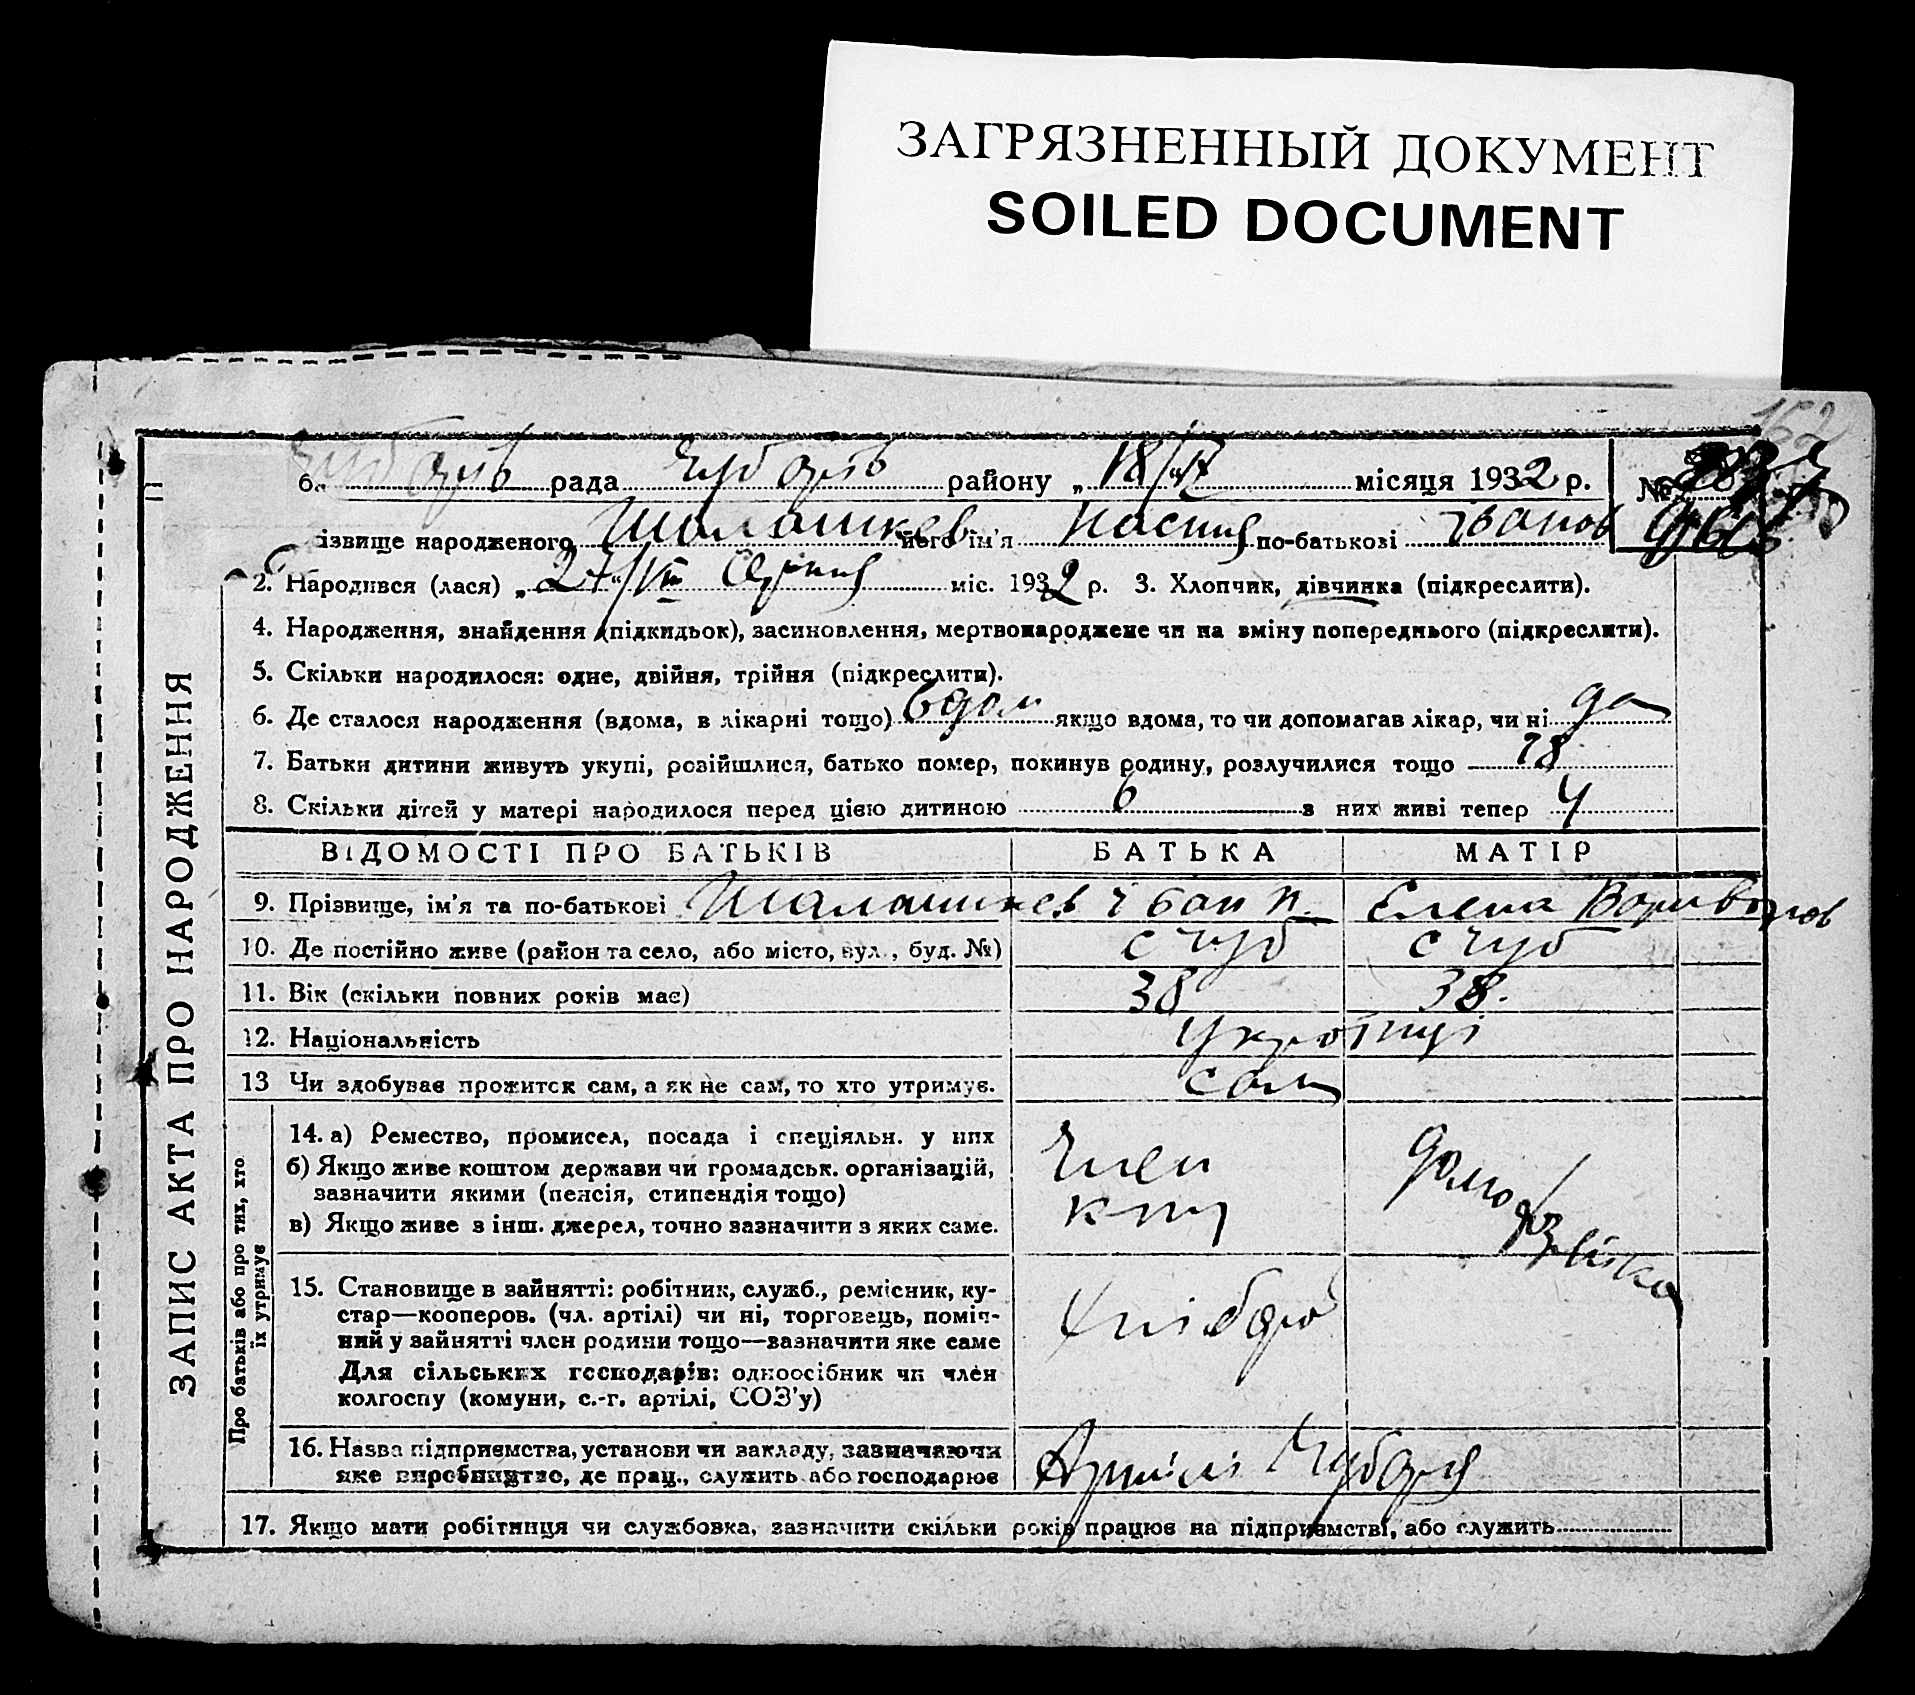 ЗАГРЯЗНЕННЫЙ ДОКУМЕНТ
SOILED DOCUMENT
162
рада району „ 18/ місяця 1932 р. №
ізвище народженого його ім'я по-батькові Іванов
2. Народився (лася) „ 27/VIII Серпня міс. 1932 р. 3. Хлопчик, дівчинка (підкреслити).
4. Народження, знайдення (підкидьок), засиновлення, мертвонароджене чи на зміну попереднього (підкреслити).
5. Скільки народилося: одне, двійня, трійня (підкреслити).
6. Де сталося народження (вдома, в лікарні тощо) вдом якщо вдома, то чи допомагав лікар, чи ні да
7. Батьки дитини живуть укупі, розійшлися, батько помер, покинув родину, розлучилися тощо 18
8. Скільки дітей у матері народилося перед цією дитиною 6 з них живі тепер 4
ЗАПИС АКТА ПРО НАРОДЖЕННЯ
ВІДОМОСТІ ПРО БАТЬКІВ БАТЬКА МАТІР
9. Прізвище, ім'я та по-батькові Іван Елена
10. Де постійно живе (район та село, або місто, вул., буд. №) с Чуб с Чуб
11. Вік (скільки повних років має) 38 38.
12. Національність Українці
13 Чи здобуває прожиток сам, а як не сам, то хто утримує. сам
Про батьків або про тих, хто
їх утримує
14. а) Ремество, промисел, посада і спеціяльн. у них Член
б) Якщо живе коштом держави чи громадськ. організацій,
зазначити якими (пенсія, стипендія тощо)
в) Якщо живе з інш. джерел, точно зазначити з яких саме.
15. Становище в зайнятті: робітник, служб., ремісник, ку-
стар—кооперов. (чл. артілі) чи ні, торговець, поміч-
ний у зайнятті член родини тощо—зазначити яке саме хлібороб
Для сільських господарів: одноосібник чи член
колгоспу (комуни, с.-г. артілі, СОЗ'у)
16. Назва підприємства, установи чи закладу, зазначаючи Артіль
яке виробництво, де прац., служить або господарює
17. Якщо мати робітниця чи службовка, зазначити скільки років працює на підприємстві, або служить